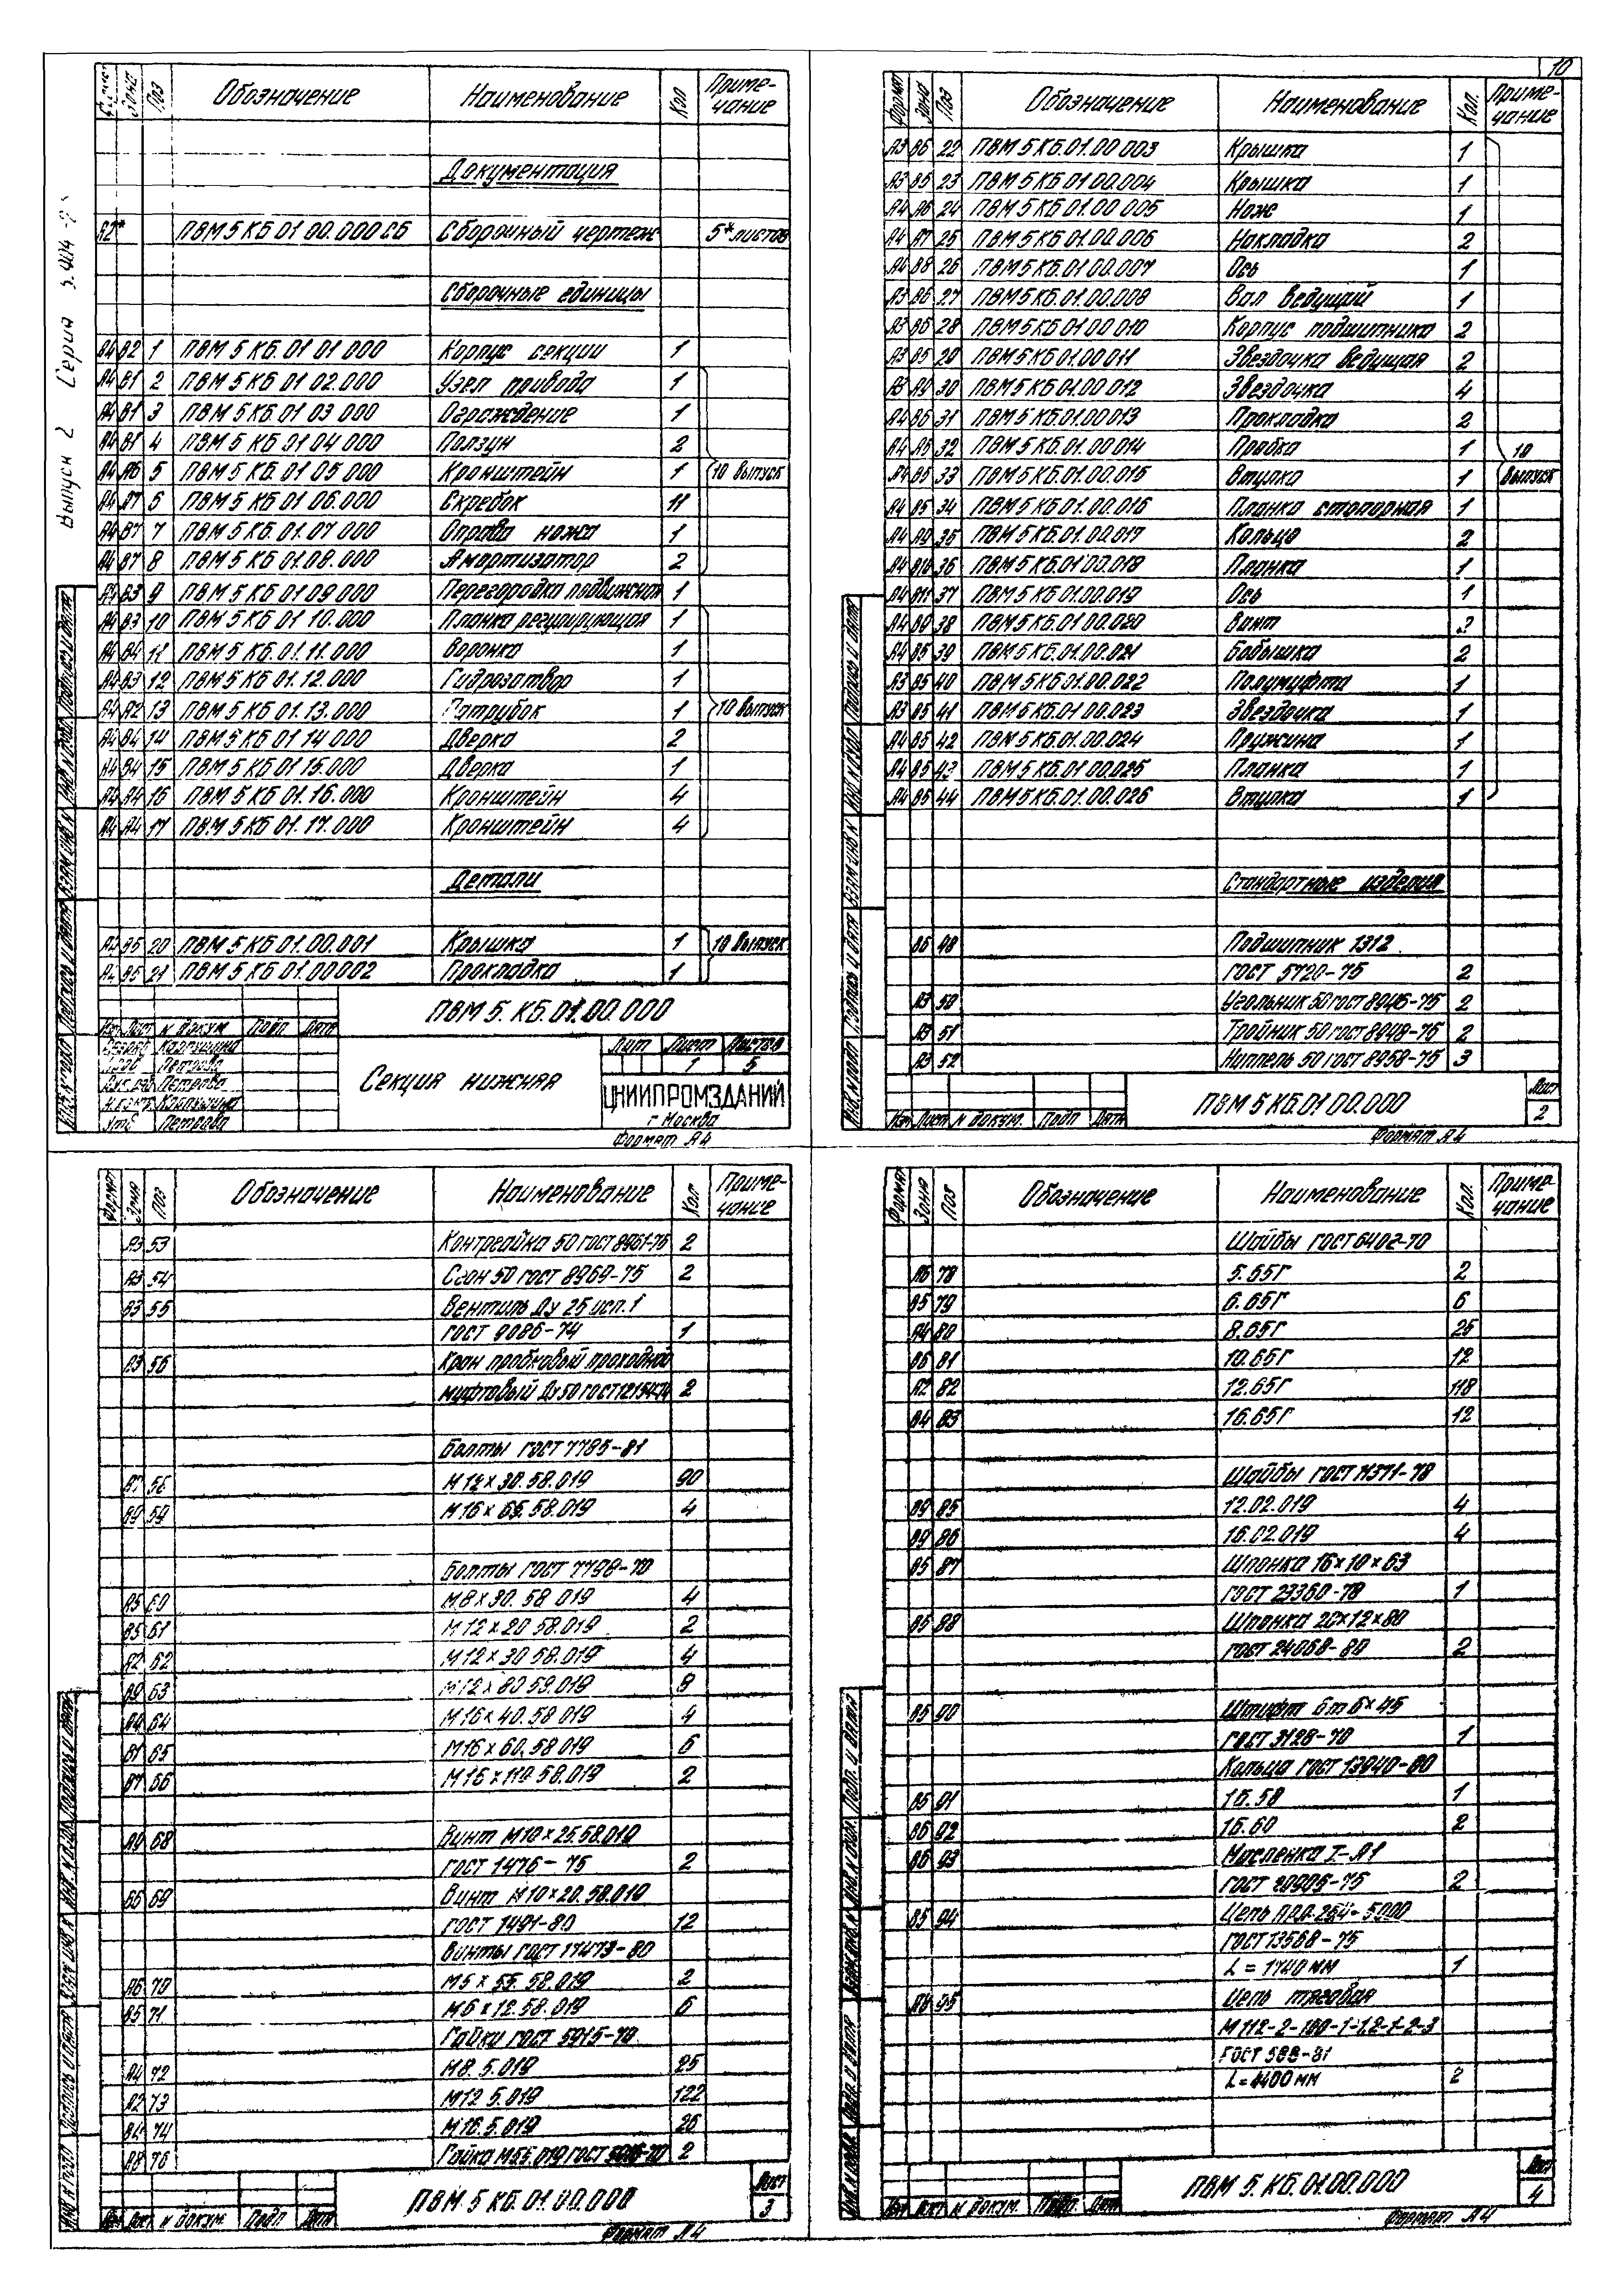 10
Выпуск 2 Серия
Зона Поз Обозначение Наименование Кол Примечание
Документация
А2* ПВМ 5 КБ 01 00.000 СБ Сборочный чертеж 5* листов
Сборочные единицы
А4 В2 1 ПВМ 5 КБ.01 01 000 Корпус секции 1
А4 В1 2 ПВМ 5 КБ 01 02.000 Узел привода 1
А4 В1 3 ПВМ 5 КБ 01 03 000 Ограждение 1
А4 В1 4 ПВМ 5 КБ 01 04 000 Ползун 2
А4 А6 5 ПВМ 5 КБ 01 05 000 Кронштейн 1 10 выпуск
А4 А7 6 ПВМ 5 КБ 01 06.000 Скребок 11
А4 В7 7 ПВМ 5 КБ.01.07.000 Оправа ножа 1
А4 В7 8 ПВМ 5 КБ 01.08.000 Амортизатор 2
А4 В3 9 ПВМ 5 КБ 01 09 000 Перегородка подвижная 1
А4 В3 10 ПВМ 5 КБ 01 10.000 Планка регулирующая 1
А4 В4 11 ПВМ 5 КБ.01.11.000 Воронка 1
А4 В3 12 ПВМ 5 КБ 01.12.000 Гидрозатвор 1
А4 А2 13 ПВМ 5 КБ 01.13.000 Патрубок 1 10 выпуск
А4 В4 14 ПВМ 5 КБ 01 14 000 Дверка 2
А4 В4 15 ПВМ 5 КБ 01 15.000 Дверка 1
А4 А4 16 ПВМ 5 КБ 01.16.000 Кронштейн 4
А4 А4 17 ПВМ 5 КБ 01.17.000 Кронштейн 4
Детали
В6 20 ПВМ 5 КБ 01.00.001 Крышка 1 10 выпуск
В6 21 ПВМ 5 КБ 01.00002 Прокладка 1
ПВМ 5. КБ.01.00.000
Изм Лист N докум Подп Дата
Петрова
Петрова
Утв Петрова
Секция нижняя
Лит Лист Листов
1 5
ЦНИИПРОМЗДАНИЙ
г Москва
Формат А4
Формат Зона Поз Обозначение Наименование Кол. Примечание
А3 В6 22 ПВМ 5 КБ.01.00 003 Крышка 1
А3 В5 23 ПВМ 5 КБ 01 00.004 Крышка 1
А4 А6 24 ПВМ 5 КБ 01.00 005 Нож 1
А4 А7 25 ПВМ 5 КБ.01.00.006 Накладка 2
А4 В8 26 ПВМ 5 КБ.01.00.007 Ось 1
А3 В6 27 ПВМ 5 КБ.01.00.008 Вал ведущий 1
А3 В6 28 ПВМ 5 КБ 01.00 010 Корпус подшипника 2
А3 В5 29 ПВМ 5 КБ.01.00 011 Звездочка ведущая 2
А3 А9 30 ПВМ 5 КБ 01.00 012 Звездочка 4
А4 В6 31 ПВМ 5 КБ.01.00013 Прокладка 2
А4 А5 32 ПВМ 5 КБ 01.00 014 Пробка 1 10
А4 В5 33 ПВМ 5 КБ.01.00.015 Втулка 1 выпуск
А4 В5 34 ПВМ 5 КБ 01.00.016 Планка стопорная 1
А4 А9 35 ПВМ 5 КБ.01.00.017 Кольцо 2
А4 В10 36 ПВМ 5 КБ.01.00.018 Планка 1
А4 В11 37 ПВМ 5 КБ.01.00.019 Ось 1
А4 В9 38 ПВМ 5 КБ.01.00.020 Винт
А4 В5 39 ПВМ 5 КБ.01.00.021 Бобышка 2
А3 В5 40 ПВМ 5 КБ 01.00.022 Полумуфта 1
А3 В5 41 ПВМ 5 КБ.01.00.023 Звездочка 1
А4 В5 42 ПВМ 5 КБ.01.00.024 Пружина 1
А4 В5 43 ПВМ 5 КБ 01 00.025 Планка 1
А4 В5 44 ПВМ 5 КБ.01.00.026 Втулка 1
Стандартные изделия
В6 48 Подшипник 1312
ГОСТ 5720-75 2
А3 50 Угольник 50 ГОСТ 8946-75 2
А3 51 Тройник 50 ГОСТ 8948-75 2
А3 52 Ниппель 50 ГОСТ 8958-75 3
ПВМ 5 КБ 01 00.000
Лист
2
Изм Лист N докум. Подп Дата
Формат А4
Формат Зона Поз Обозначение Наименование Кол Примечание
А3 53 Контргайка 50 ГОСТ 8961-75 2
А3 54 Сгон 50 ГОСТ 8969-75 2
В3 55 Вентиль Ду 25 исп. 1
ГОСТ 9086-74 1
А3 56 Кран пробковый проходной
муфтовый Ду 50 ГОСТ 12154-74 2
Болты ГОСТ 7795-81
М12×30.58.019 90
А9 59 М16×65.58.019 4
Болты ГОСТ 7798-70
А5 60 М8×30.58 019 4
В5 61 М12×20 58.019 2
А2 62 М12×30 58.019 4
В9 63 М12×80 58.019 8
А4 64 М16×40.58 019 4
В1 65 М16×60.58 019 6
В7 66 М16×110 58.019 2
А9 68 Винт М10×25.58.019
ГОСТ 1476-75 2
В6 69 Винт М10×20.58.019
ГОСТ 1491-80 12
Винты ГОСТ 17473-80
А6 70 М5×55.58.019 2
В5 71 М6×12.58.019 6
Гайки ГОСТ 5915-70
А4 72 М8.5.019 25
А2 73 М12 5.019 122
74 М16.5.019 26
А8 76 2
ПВМ. 5 КБ.01.00.000
Лист
3
Изм Лист N докум. Подп Дата
Формат А4
Формат Зона Поз Обозначение Наименование Кол. Примечание
Шайбы ГОСТ 6402-70
А6 78 5.65Г 2
В5 79 6.65Г 6
А4 80 8.65Г 25
В6 81 10.65Г 12
А2 82 12.65Г 118
В4 83 16.65Г 12
Шайбы ГОСТ 11371-78
В9 85 12.02.019 4
В9 86 16.02.019 4
В5 87 Шпонка 16×10×63
ГОСТ 23360-78 1
В5 88 Шпонка 20×12×80
ГОСТ 24068-80 2
В5 90 Штифт 6m6×45
ГОСТ 3128-70 1
Кольца ГОСТ 13940-80
В5 91 1Б.58 1
В6 92 1Б.60 2
В6 93 Масленка I-А1
ГОСТ 20905-75 2
В5 94 Цепь
ГОСТ 13568-75
L = 1740 мм 1
95 Цепь тяговая
М112-2-100-1-1,2-1-2-3
ГОСТ 588-81
L = 4400 мм 2
ПВМ 5. КБ.01.00.000
Лист
4
Изм Лист N докум. Подп. Дата
Формат А4